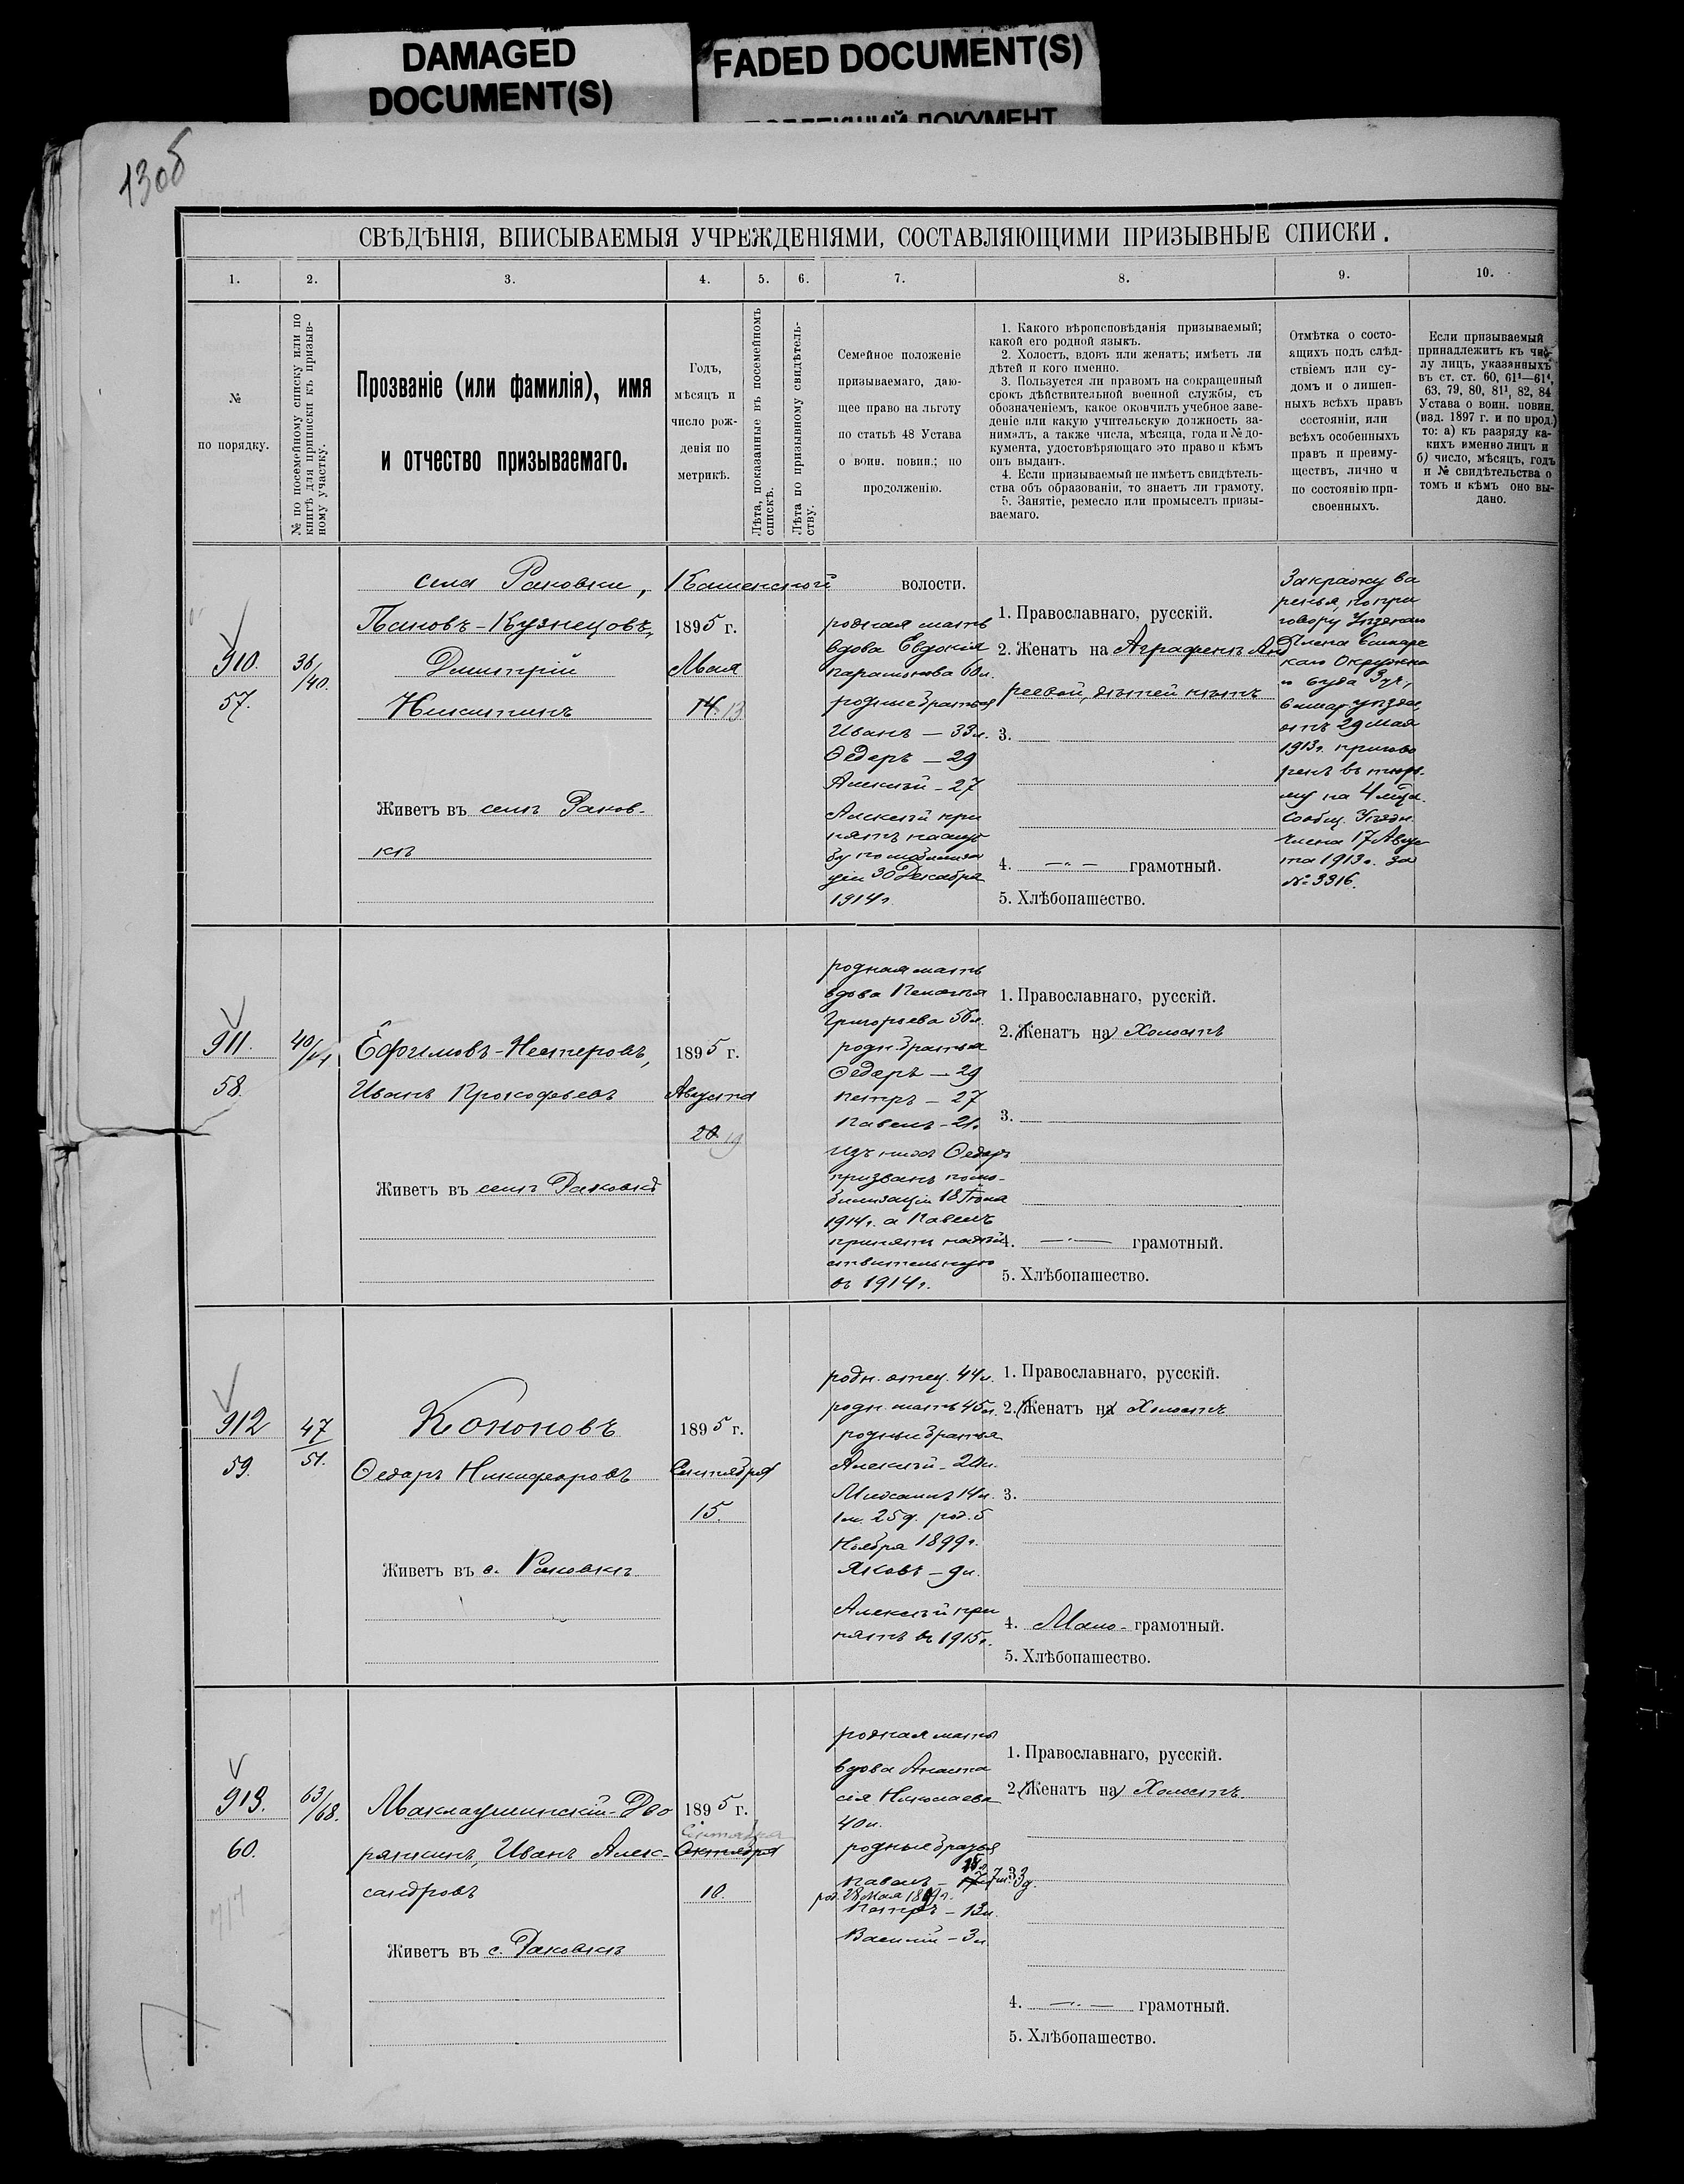 DAMAGED
DOCUMENT(S)
FADED DOCUMENT(S)
ДОКУМЕНТ
130б
СВѢДѢНІЯ, ВПИСЫВАЕМЫЯ УЧРЕЖДЕНІЯМИ, СОСТАВЛЯЮЩИМИ ПРИЗЫВНЫЕ СПИСКИ.
1.
2.
3.
4.
5.
6.
7.
8.
9.
10.
№
по порядку.
№ по посемейному списку или по
книгѣ для приписки къ призыв-
ному участку.
Прозваніе (или фамилія), имя
и отчество призываемаго.
Годъ,
мѣсяцъ и
число рож-
денія по
метрикѣ.
Лѣта, показанные въ посемейномъ
спискѣ.
Лѣта по призывному свидѣтель-
ству.
Семейное положеніе
призываемаго, даю-
щее право на льготу
по статьѣ 48 Устава
о воин. повин.; по
продолженію.
1. Какого вѣроисповѣданія призываемый;
какой его родной языкъ.
2. Холостъ, вдовъ или женатъ; имѣетъ ли
дѣтей и кого именно.
3. Пользуется ли правомъ на сокращенный
срокъ дѣйствительной военной службы, съ
обозначеніемъ, какое окончилъ учебное заве-
деніе или какую учительскую должность за-
нималъ, а также числа, мѣсяца, года и № до-
кумента, удостовѣряющаго это право и кѣмъ
онъ выданъ.
4. Если призываемый не имѣетъ свидѣтель-
ства объ образованіи, то знаетъ ли грамоту.
5. Занятіе, ремесло или промыселъ призы-
ваемаго.
Отмѣтка о состо-
ящихъ подъ слѣд-
ствіемъ или су-
домъ и о лишен-
ныхъ всѣхъ правъ
состоянія, или
всѣхъ особенныхъ
правъ и преиму-
ществъ, лично и
по состоянію при-
своенныхъ.
Если призываемый
принадлежитъ къ чис-
лу лицъ, указанныхъ
въ ст. ст. 60, 61¹—61⁴,
63, 79, 80, 81¹, 82, 84
Устава о воин. повин.
(изд. 1897 г. и по прод.)
то: а) къ разряду ка-
кихъ именно лицъ и
б) число, мѣсяцъ, годъ
и № свидѣтельства о
томъ и кѣмъ оно вы-
дано.
села Раковки, Каменской волости.
910.
57.
36/40.
Пановъ-Кузнецовъ,
Дмитрій
Никитинъ
Живетъ въ селѣ Раков-
кѣ
1895 г.
Мая
14 13
родная мать
вдова Евдокія
Парамонова 60 л.
родные братья
Иванъ — 33 л.
Ѳедоръ — 29
Алексѣй - 27
Алексѣй при
нятъ на служ
бу по мобилиза
ціи 30 Декабря
1914 г.
1. Православнаго, русскій.
2. Женатъ на Аграфенѣ Анд
реевой, дѣтей нѣтъ
3.
4. —"— грамотный.
5. Хлѣбопашество.
За кражу ва
ренья, по при
говору Уѣзднаго
Члена Самарс
каго Окружна
го Суда 3 уч.,
Самар. уѣзда,
отъ 29 Мая
1913 г. пригово
ренъ въ тюрь
му на 4 мѣся.
Сообщ. Уѣздн.
Члена 17 Авгус
та 1913 г. за
№ 3316.
911.
58.
40/
Ефимовъ-Нестеровъ,
Иванъ Прокофьевъ
Живетъ въ селѣ Раковкѣ
1895 г.
Августа
20 19
родная мать
вдова Пелагея
Григорьева 56 л.
родн. братья
Ѳедоръ — 29
Петръ — 27
Павелъ - 21.
изъ нихъ Ѳедоръ
призванъ по мо-
билизаціи 18 Іюля
1914 г. а Павелъ
принятъ на дѣй
ствительную
въ 1914 г.
1. Православнаго, русскій.
2. Женатъ на Холостъ
3.
4. —"— грамотный.
5. Хлѣбопашество.
912
59.
47
51.
Кононовъ
Ѳедоръ Никифоровъ
Живетъ въ с. Раковкѣ
1895 г.
Сентября
15.
родн. отец. 44 л.
родн. мать 45 л.
родные братья
Алексѣй - 20 л.
Михаилъ 14 л.
1 м. 25 д. род. 5
Ноября 1899 г.
Яковъ — 9 л.
Алексѣй при
нятъ въ 1915 г.
1. Православнаго, русскій.
2. Женатъ на Холостъ
3.
4. Мало-грамотный.
5. Хлѣбопашество.
913.
60.
63/68.
Маклаушинскій-Дво
рянкинъ, Иванъ Алек-
сандровъ
Живетъ въ с. Раковкѣ
1895 г.
Сентября
Октября
10
родная мать
вдова Анаста
сія Николаева
40 л.
родные братья
Павелъ —
Петръ — 13 л.
Василій — 3 л.
1. Православнаго, русскій.
2. Женатъ на Холостъ.
4. —"— грамотный.
5. Хлѣбопашество.